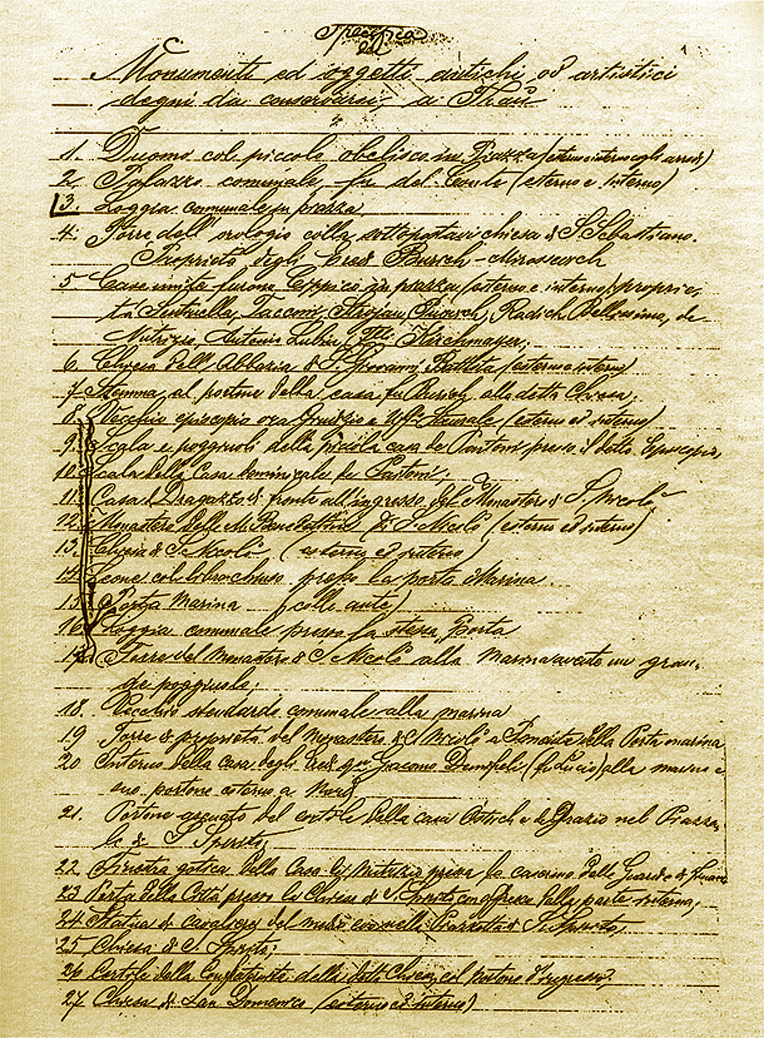 Specifica
dei
1
Monumenti ed oggetti antichi od artistici
degni di conservarsi, a Traù
1. Duomo col piccolo obelisco in Piazza (esterno interno cogli arredi)
2. Palazzo comunale, fu del Conte (esterno e interno)
3. Loggia comunale in piazza
4. Torre dell'orologio colla sottoposta chiesa di S. Sebastiano.
Proprietà degli Eredi
5 Case unite furono Cippico in piazza (esterno e interno) proprie-
tà Sentinella, Tacconi, Radich Bellissima, de
Nutrizio, Antonio Lubin, Fr.lli Kirchmayer;
6. Chiesa dell'Abbazia di S. Giovanni Battista (esterno e interno)
7. Stemma al portone della casa fu Burich alla detta Chiesa;
8. Vecchio episcopio ora Giudizio e Uff.o Steurale (esterno ed interno)
9. Scala e poggiuoli della piccola casa de Pantoni presso il detto Episcopio,
10. Scala della Casa dominicale fu Pantoni;
11. Casa Dragazzo di fronte all'ingresso del Monastero di S. Nicolò
12. Monastero delle M. Benedettine di S. Nicolò (esterno ed interno)
13. Chiesa di S. Nicolò (esterno ed interno)
14. Leone col libro chiuso presso la porta Marina
15. Porta Marina (colle ante)
16. Loggia comunale presso la stessa Porta
17. Torre del Monastero di S. Nicolò alla Marina avente un gran-
de poggiuolo;
18. Vecchio stendardo comunale alla marina
19 Torre di proprietà del Monastero di S. Nicolò a Ponente della Porta marina
20 Interno della casa degli Eredi qm Giacomo Demicheli (fu Lucio) alla marina e
suo portone esterno a Nord
21. Portone arcuato del cortile della casa Ostich e de Grazio nel Piazza-
le di S. Spirito;
22. Finestra gotica della Casa de Nutrizio presso la caserma delle Guardie di Finanza
23 Porta della Città presso la Chiesa di S. Spirito compresa della parte interna;
24 Statua di cavaliere del nella Piazzetta di S. Spirito;
25 Chiesa di S. Spirito;
26 Cortile della Confraternita della detta Chiesa, col portone d'ingresso;
27 Chiesa di San Domenico (esterno ed interno)